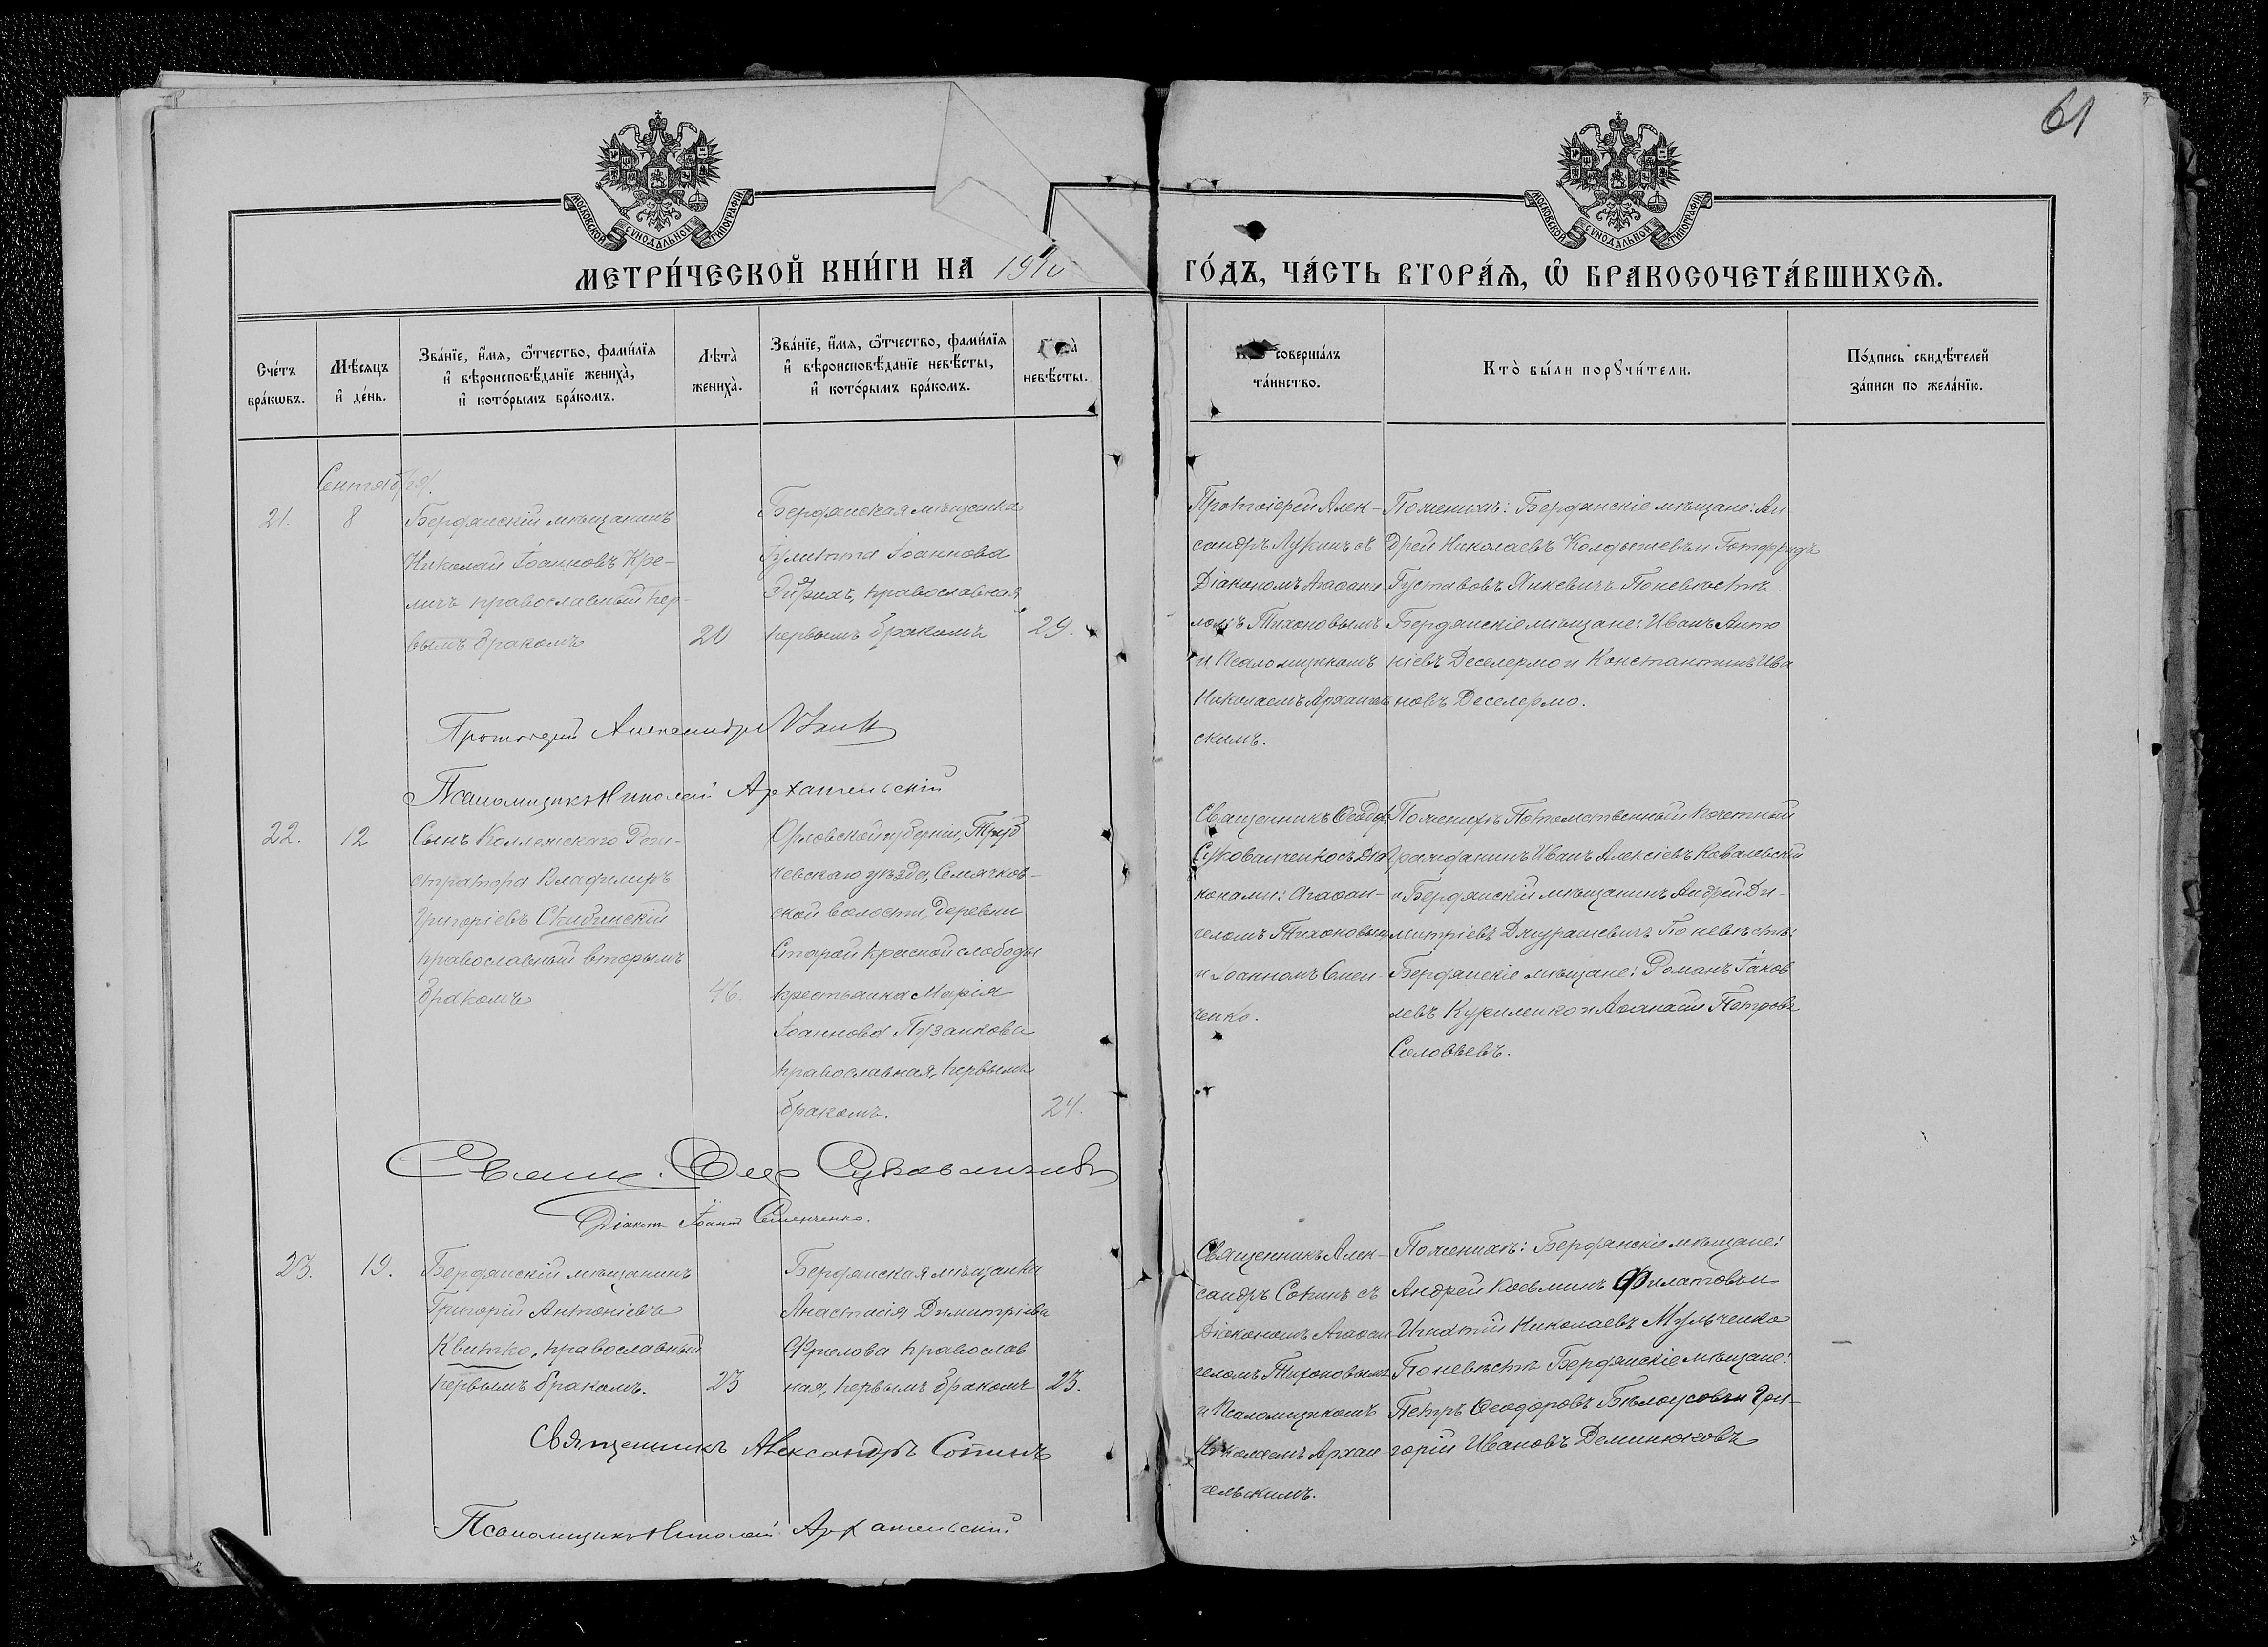 61
МОСКОВСКОЙ СУНОДАЛЬНОЙ ТИПОГРАФІИ
МОСКОВСКОЙ СУНОДАЛЬНОЙ ТИПОГРАФІИ
МЕТРИ́ЧЕСКОЙ КНИ́ГИ НА 1910
ГО́ДЪ, ЧА́СТЬ ВТОРА́Я, Ѡ БРАКОСОЧЕТА́ВШИХСЯ.
Сче́тъ
бра́ковъ.
Мѣ́сяцъ
и҆ де́нь.
Зва́нїе, и҆́мя, ѻ҆́тчество, фами́лїя
и҆ вѣроисповѣ́данїе жениха̀,
и҆ кото́рымъ бра́комъ.
Лѣта̀
жениха̀.
Зва́нїе, и҆́мя, ѻ҆́тчество, фами́лїя
и҆ вѣроисповѣ́данїе невѣ́сты,
и҆ кото́рымъ бра́комъ.
невѣ́сты.
соверша́лъ
та́инство.
Кто̀ бы́ли порꙋчи́тели.
По́дпись свидѣ́телей
за́писи по жела́нїю.
Сентября.
21.
8
Бердянскій мѣщанинъ
Николай Іоанновъ Кре-
личъ православный пер-
вымъ бракомъ
20
Бердянская мѣщанка
Іулитта Іоаннова
православная
первымъ бракомъ
29.
Протоіерей Алек-
сандръ Лукинъ съ
Діакономъ Агаѳанге
ломъ Тихоновымъ
и Псаломщикомъ
Николаемъ Архангель
скимъ.
По женихѣ: Бердянскіе мѣщане: Ан-
дрей Николаевъ и Готфридъ
Густавовъ По невѣстѣ.
Бердянскіе мѣщане: Иванъ Анто
ніевъ Деселермо и Константинъ Ива
новъ Деселермо.
Протоіерей Александръ Лукин
Псаломщикъ Николай Архангельскій
22.
12
Сынъ Коллежскаго Реги-
стратора Владимиръ
Григоріевъ Скибинскій
православный вторымъ
бракомъ
46.
Орловской губерніи, Труб
чевскаго уѣзда, Семячков-
ской волости, деревни
Старой красной слободы
крестьянка Марія
Іоаннова Пузанкова
православная, первымъ
бракомъ.
24.
Священникъ Ѳеодоръ
Сукованченко съ Діа
конами: Агаѳан-
геломъ Тихоновымъ
и Іоанномъ Семен-
ченко.
По женихѣ Потомственный почетный
гражданинъ Иванъ Алексіевъ Ковалевскій
и Бердянскій мѣщанинъ Андрей Ди-
митріевъ Джурашевичъ По невѣстѣ:
Бердянскіе мѣщане: Романъ Іаков
левъ Куриленко и Аѳанасій Петровъ
Соловьевъ.
Свящ. Ѳеод Сукованченко
Діаконъ Іоаннъ Семенченко.
23.
19.
Бердянскій мѣщанинъ
Григорій Антоніевъ
Квитко, православный
первымъ бракомъ.
23
Бердянская мѣщанка
Анастасія Димитріева
Фролова православ
ная, первымъ бракомъ
23.
Священникъ Алек-
сандръ Сопинъ съ
Діакономъ Агаѳан-
геломъ Тихоновымъ
и Псаломщикомъ
Николаемъ Архан
гельскимъ.
По женихѣ: Бердянскіе мѣщане:
Андрей Косьминъ Филатовъ и
Игнатій Николаевъ Мульченко
По невѣстѣ Бердянскіе мѣщане:
Петръ Ѳеодоровъ Бѣлоусовъ и Гри-
горій Ивановъ Деминюковъ
Священникъ Александръ Сопинъ
Псаломщикъ Николай Архангельскій